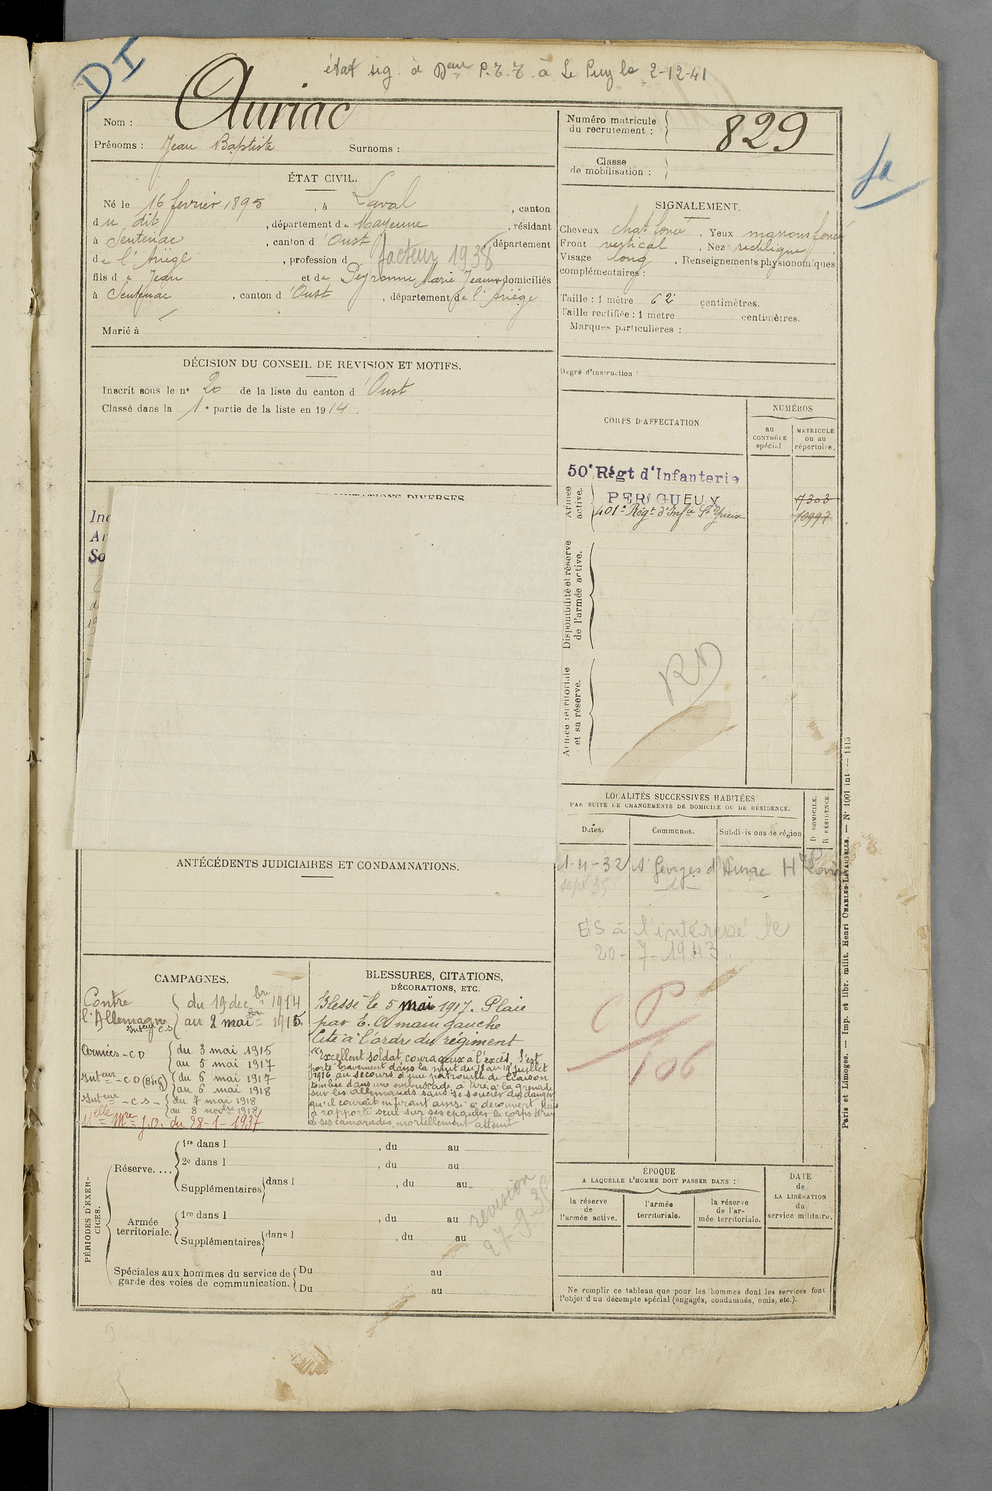 DI
état sig. à Don P.T.T. à Le Puy le 2-12-41
Nom : Auriac
Prénoms : Jean Baptiste Surnoms :
Numéro matricule du recrutement : 829
Classe de mobilisation :
ÉTAT CIVIL.
Né le 16 février 1895, à Laval, canton
du dit, département de Mayenne, résidant
à Sentenac, canton d'Oust, département
de l'Ariège, profession d facteur 1938
fils de Jean et de Peyronne Marie Jeanne, domiciliés
à Sentenac, canton d'Oust, département de l'Ariège
Marié à
SIGNALEMENT.
Cheveux chat foncé. Yeux marrons foncé
Front vertical, Nez rectiligne
Visage long, Renseignements physionomiques
complémentaires :
Taille : 1 mètre 62 centimètres.
Taille rectifiée : 1 mètre centimètres.
Marques particulières :
Degré d'instruction :
DÉCISION DU CONSEIL DE REVISION ET MOTIFS.
Inscrit sous le n° 20 de la liste du canton d'Oust
Classé dans la 1e partie de la liste en 1914.
Inc
So
CORPS D'AFFECTATION
NUMÉROS
AU CONTRÔLE spécial
MATRICULE ou au répertoire.
Armée active.
50e Régt d'Infanterie
PERIGUEUX
7303
401e Régt d'Infie St Yrieix
10997
Disponibilité et réserve de l'armée active.
Armée territoriale et sa réserve.
RD
LOCALITÉS SUCCESSIVES HABITÉES
PAR SUITE DE CHANGEMENTS DE DOMICILE OU DE RÉSIDENCE.
Dates. Communes. Subdivisions de région
D. DOMICILE. R. RÉSIDENCE.
1-4-32 St Georges d'Aurac Hte Loire
sept 35
EIS à l'intéressé le
20-7-1943.
CP
106
ANTÉCÉDENTS JUDICIAIRES ET CONDAMNATIONS.
CAMPAGNES.
Contre l'Allemagne
Intéur CS
du 19 décbre 1914
au 2 mai 1915.
Armées - CD
du 3 mai 1915
au 5 mai 1917
Intéur - CD (Bles)
du 6 mai 1917
au 6 mai 1918
Intéur - CS -
du 7 mai 1918
au 8 novbre 1918
J.O. du 28-1-1937
BLESSURES, CITATIONS,
DÉCORATIONS, ETC.
Blessé le 5 mai 1917. Plaie
par E.O main gauche
Cité à l'ordre du régiment
"Excellent soldat courageux à l'excès, s'est
porté bravement dans la nuit du 18 au 19 juillet
1916 au secours d'une patrouille de liaison
tombée dans une embuscade, a tiré à la grenade
sur les allemands sans se soucier du danger
qu'il courait en tirant ainsi à découvert, puis
a rapporté seul sur ses épaules le corps d'un
de ses camarades, mortellement atteint
PÉRIODES D'EXERCICES.
Réserve....
1re dans l , du au
2e dans l , du au
Supplémentaires dans l , du au
Armée territoriale.
1re dans l , du au
Supplémentaires dans l , du au
Spéciales aux hommes du service de garde des voies de communication.
Du au
Du au
revision
27-9-35
ÉPOQUE
A LAQUELLE L'HOMME DOIT PASSER DANS :
la réserve de l'armée active.
l'armée territoriale.
la réserve de l'armée territoriale.
DATE de LA LIBÉRATION du service militaire.
Ne remplir ce tableau que pour les hommes dont les services font
l'objet d'un décompte spécial (engagés, condamnés, omis, etc.).
Paris et Limoges. — Imp. et libr. milit. Henri CHARLES-LAVAUZELLE. — N° 1001 int — 1415